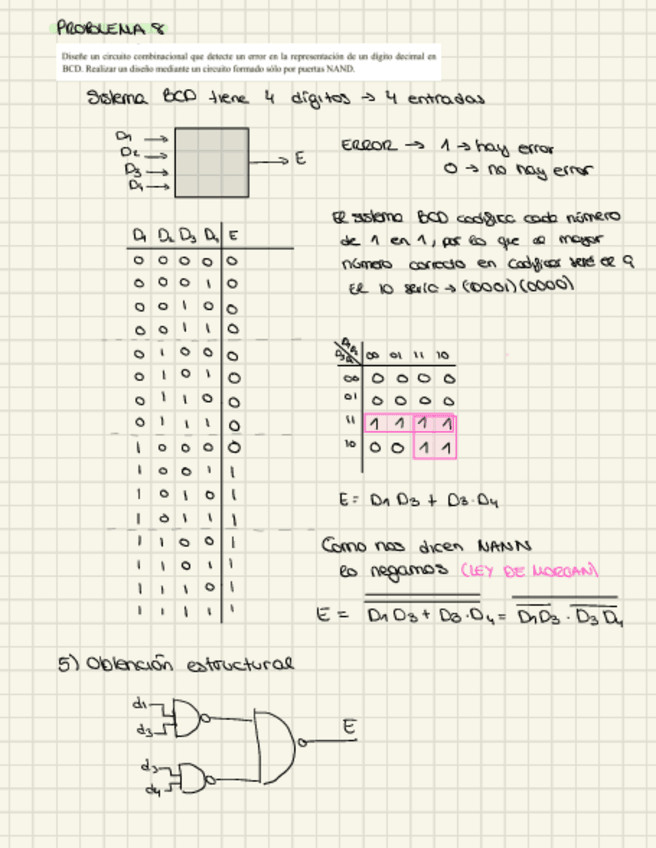 PROBLEMA 8
Diseñe un circuito combinacional que detecte un error en la representación de un dígito decimal en
BCD. Realizar un diseño mediante un circuito formado sólo por puertas NAND.
Sistema BCD tiene 4 dígitos → 4 entradas
D1 →
D2 →
D3 →
D4 →
→ E
ERROR → 1 → hay error
0 → no hay error
El sistema BCD codifica cada número
de 1 en 1, por lo que el mayor
número correcto en codificar será el 9
El 10 sería → (0001)(0000)
D1 D2 D3 D4 E
0 0 0 0 0
0 0 0 1 0
0 0 1 0 0
0 0 1 1 0
0 1 0 0 0
0 1 0 1 0
0 1 1 0 0
0 1 1 1 0
1 0 0 0 0
1 0 0 1 1
1 0 1 0 1
1 0 1 1 1
1 1 0 0 1
1 1 0 1 1
1 1 1 0 1
1 1 1 1 1
00 01 11 10
00 0 0 0 0
01 0 0 0 0
11 1 1 1 1
10 0 0 1 1
E = D1 D3 + D3·D4
Como nos dicen NANN
lo negamos (LEY DE MORGAN)
E = D1 D3 + D3·D4 = D1D3 · D3 D4
5) Obtención estructural
d1
d3
d3
d4
E